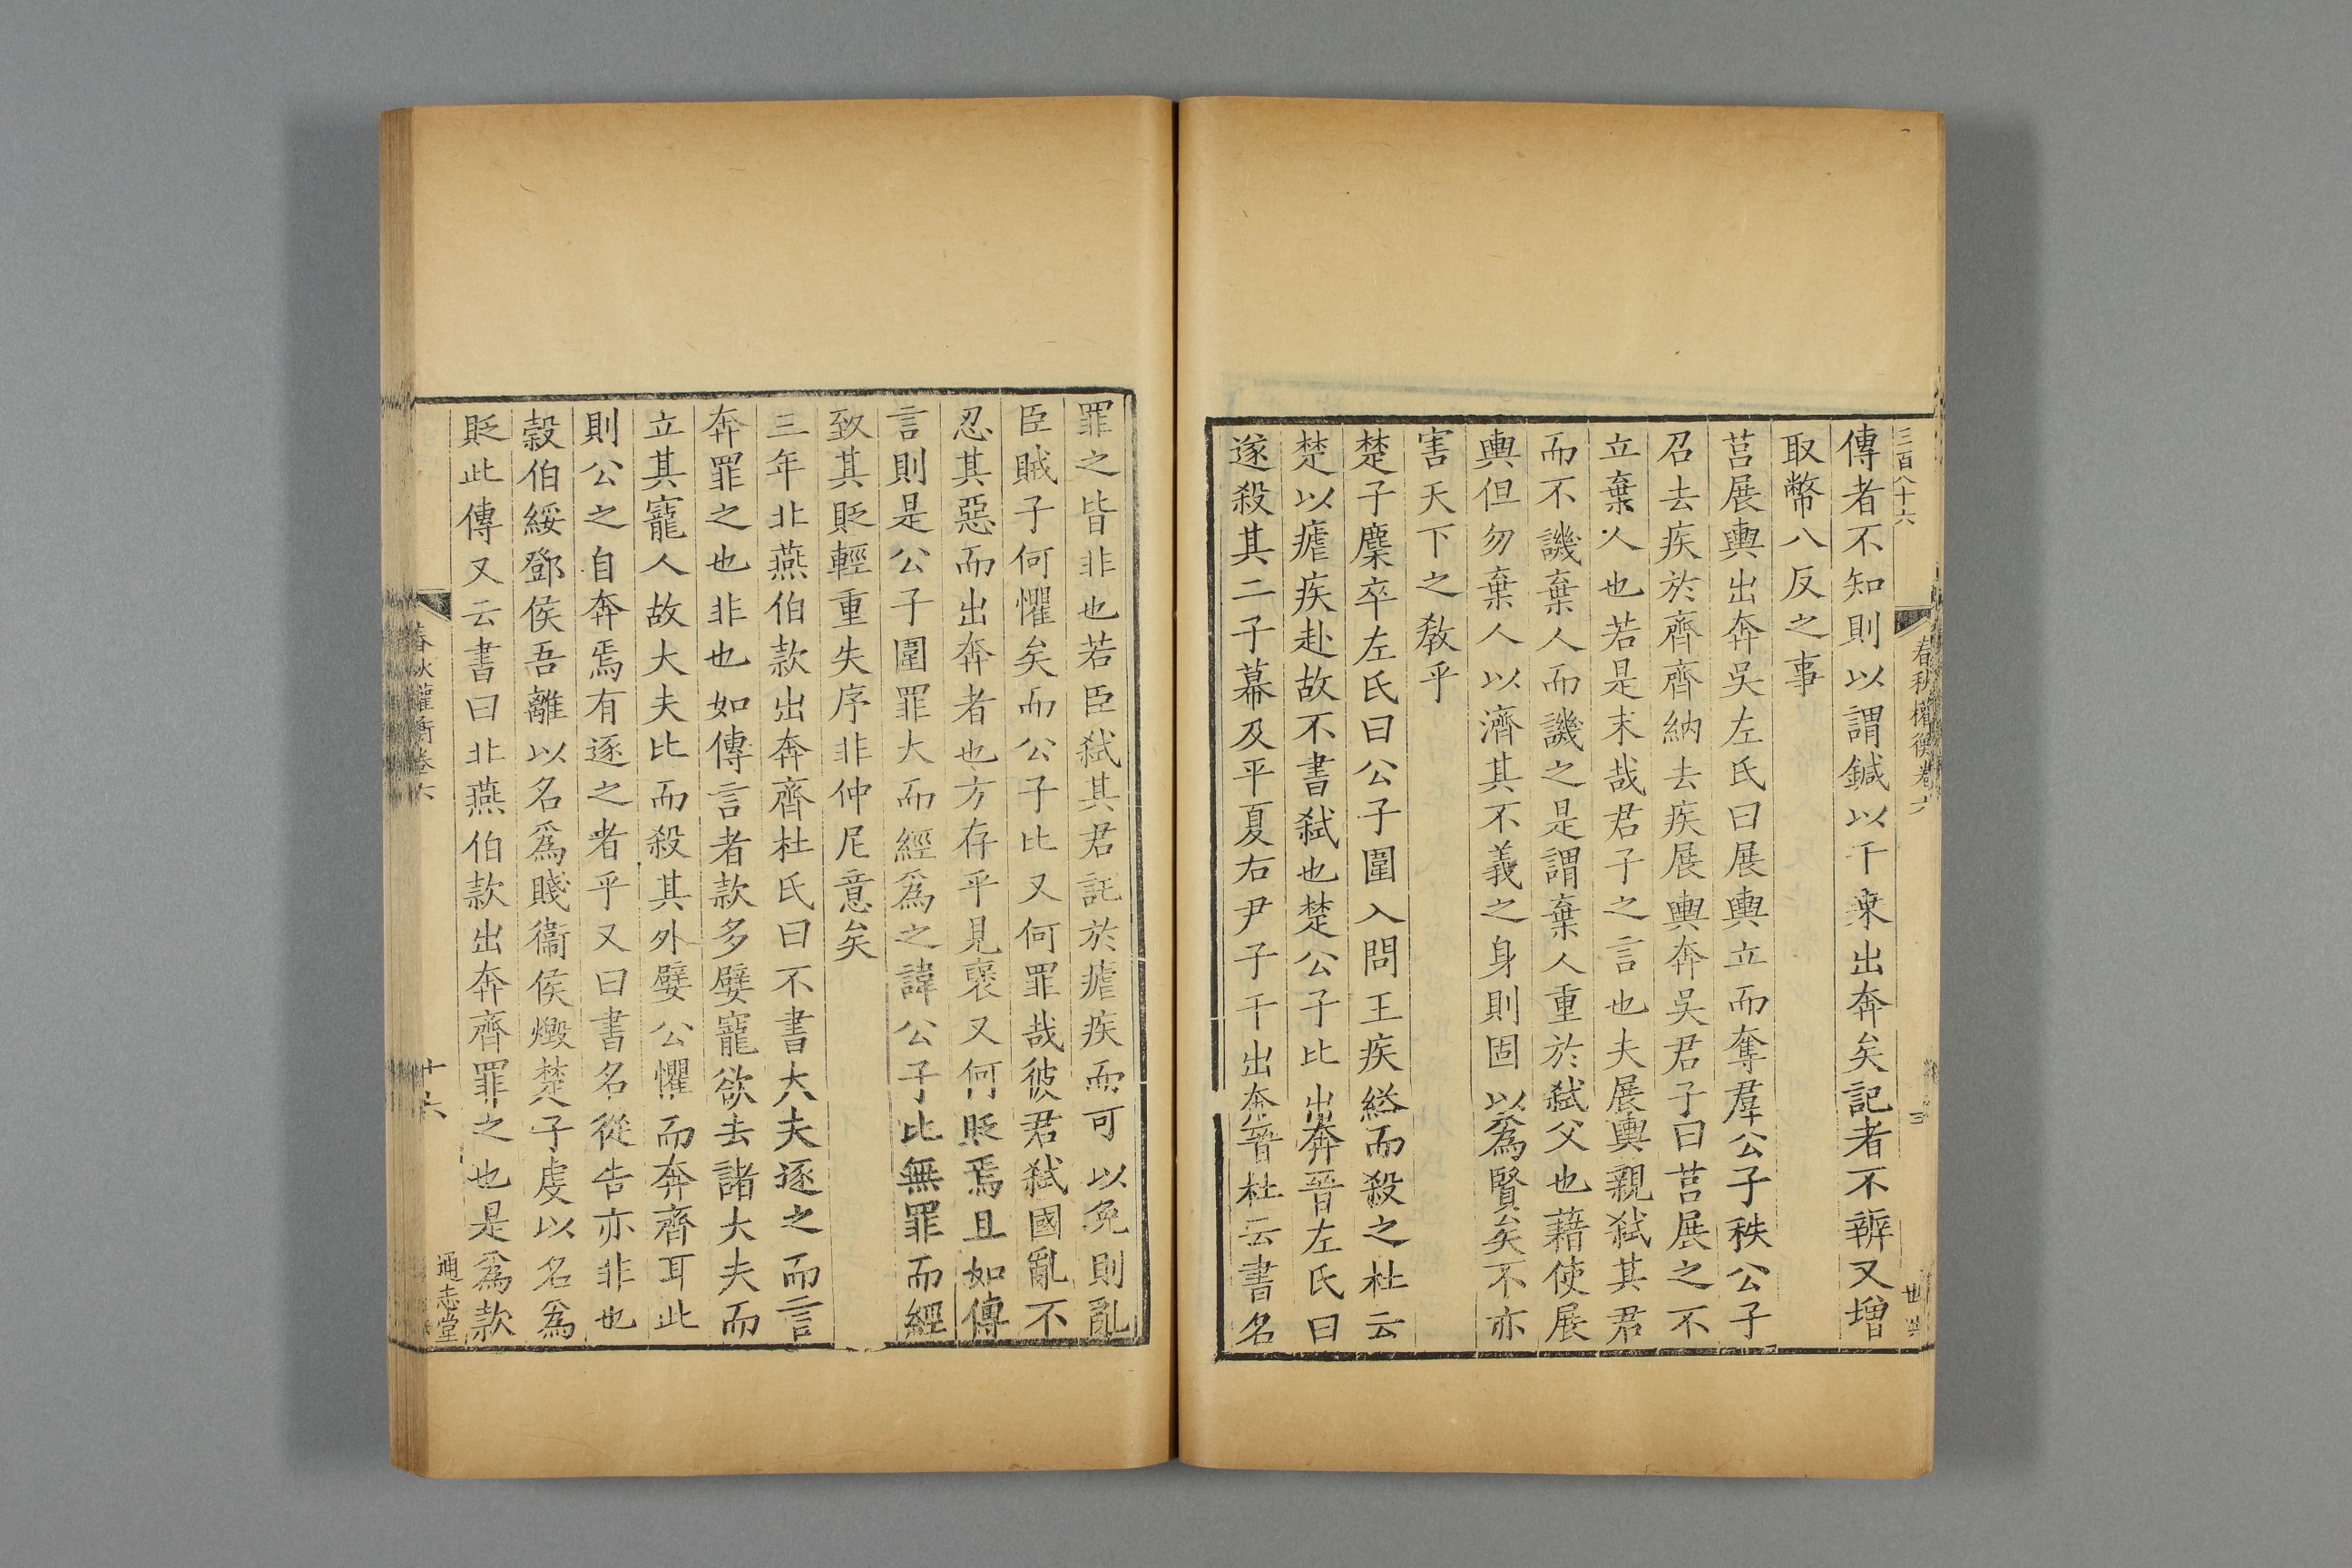 三百八十六
春秋權衡卷六
傳者不知則以謂鍼以千乗出奔矣記者不辨又增
取幣八反之事
莒展輿出奔吳左氏曰展輿立而奪羣公子秩公子
召去疾於齊齊納去疾展輿奔吳君子曰莒展之不
立棄人也若是末哉君子之言也夫展輿親弑其君
而不譏棄人而譏之是謂棄人重於弑父也藉使展
輿但勿棄人以濟其不義之身則固以爲賢矣不亦
害天下之敎乎
楚子麇卒左氏曰公子圍入問王疾縊而殺之杜云
楚以瘧疾赴故不書弑也楚公子比出奔晉左氏曰
遂殺其二子幕及平夏右尹子干出奔晉杜云書名
罪之皆非也若臣弑其君託於瘧疾而可以免則亂
臣賊子何懼矣而公子比又何罪哉彼君弑國亂不
忍其惡而出奔者也方存乎見襃又何貶焉且如傳
言則是公子圍罪大而經爲之諱公子比無罪而經
致其貶輕重失序非仲尼意矣
三年北燕伯款出奔齊杜氏曰不書大夫逐之而言
奔罪之也非也如傳言者款多嬖寵欲去諸大夫而
立其寵人故大夫比而殺其外嬖公懼而奔齊耳此
則公之自奔焉有逐之者乎又曰書名從告亦非也
穀伯綏鄧侯吾離以名爲賤衞侯燬楚子虔以名爲
貶此傳又云書曰北燕伯款出奔齊罪之也是爲款
春秋權衡卷六
十六
通志堂